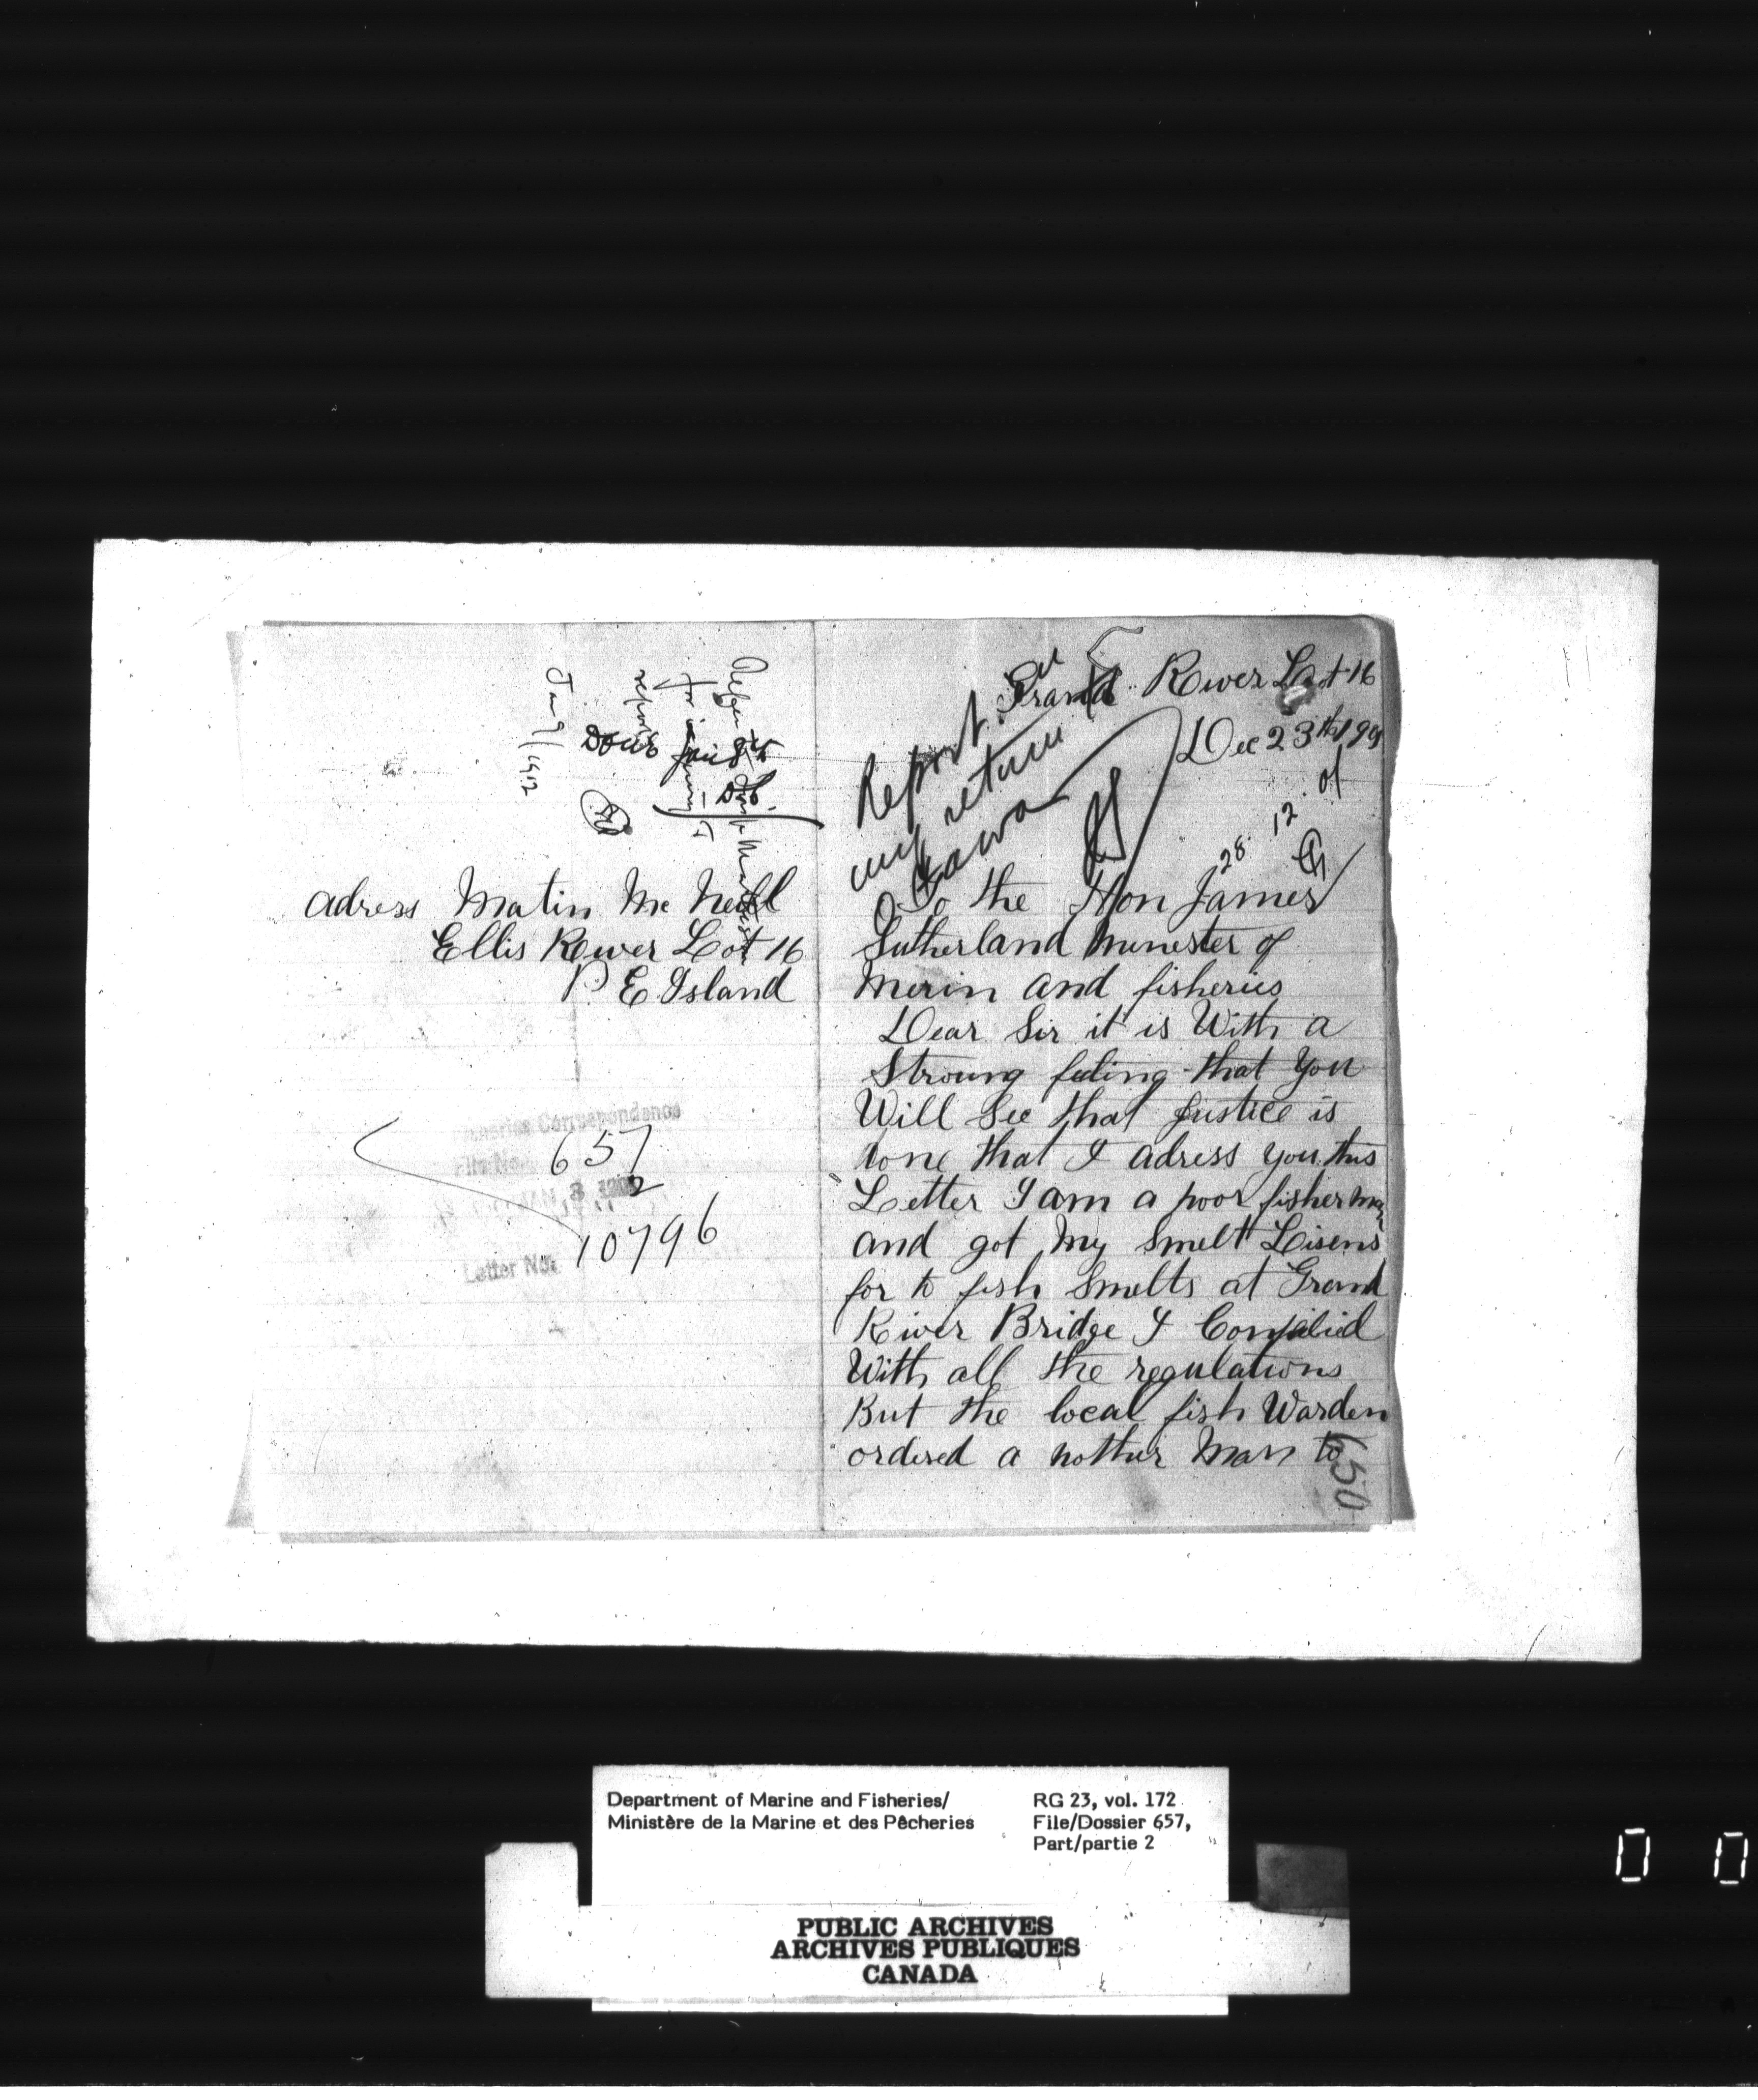 adress Matin Mc Neill
Ellis River Lot 16
P. E. Island
Fisheries Correspondence
File No. 657
2
Letter No. 10796
Grand River Lot 16
Dec 23th
Report
my return
Ottawa
28. 12. 01
To the Hon James
Sutherland Minester of
Merin and fisheries
Dear Sir it is With a
Stroung feeling that You
Will See that Justice is
done that I adress you this
Letter I am a poor fisherman
and got My Smelt Lisens
for to fish Smelts at Grand
River Bridge I Complied
With all the regulations
But the local fish Warden
ordered a nother Man to
650
Department of Marine and Fisheries/
Ministère de la Marine et des Pêcheries
RG 23, vol. 172
File/Dossier 657,
Part/partie 2
PUBLIC ARCHIVES
ARCHIVES PUBLIQUES
CANADA
0 0